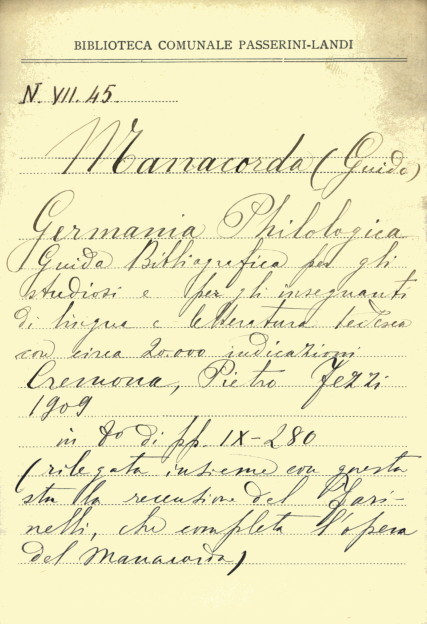 BIBLIOTECA COMUNALE PASSERINI-LANDI
N. VII. 45.
Manacorda (Guido)
Germania Philologica
Guida Bibliografica per gli
studiosi e per gli insegnanti
di lingua e letteratura tedesca
con circa 20.000 indicazioni
Cremona, Pietro Fezzi
1909
in 8º di pp. IX-280
(rilegata insieme con questa
sta la recensione del Fari-
nelli, che completa l'opera
del Manacorda)